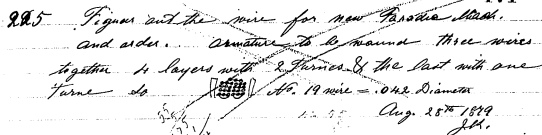 225 Figuar out the wire for new Faradic Mach.
and order. armature to be wound three wires
together 4 layers with 2 turnes & the last with one
turne so No. 19 wire = .042 Diameter
Aug. 28th 1879